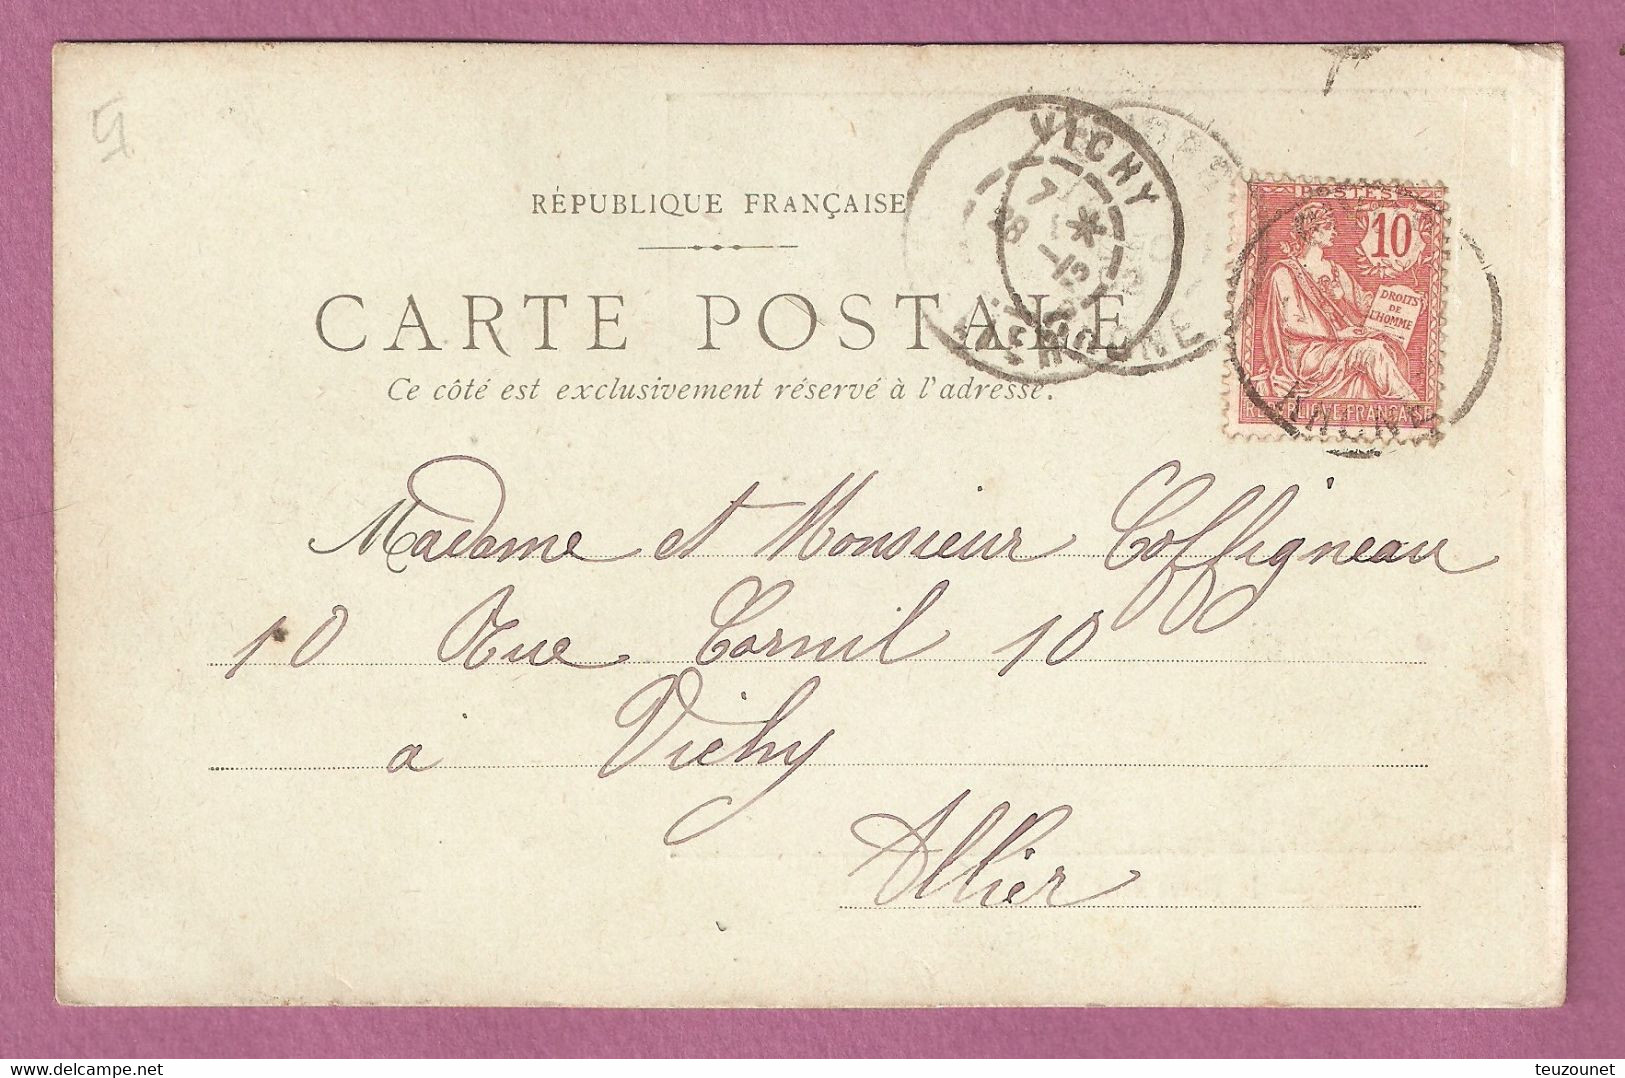 RÉPUBLIQUE FRANÇAISE
CARTE POSTALE
Ce côté est exclusivement réservé à l'adresse.
VICHY
ALLIER
RHONE
POSTES
10
DROITS
DE
L'HOMME
REPUBLIQUE FRANÇAISE
RHONE
Madame et Monsieur Coffigneau
10 Rue Cornil 10
a Vichy
Allier
teuzounet